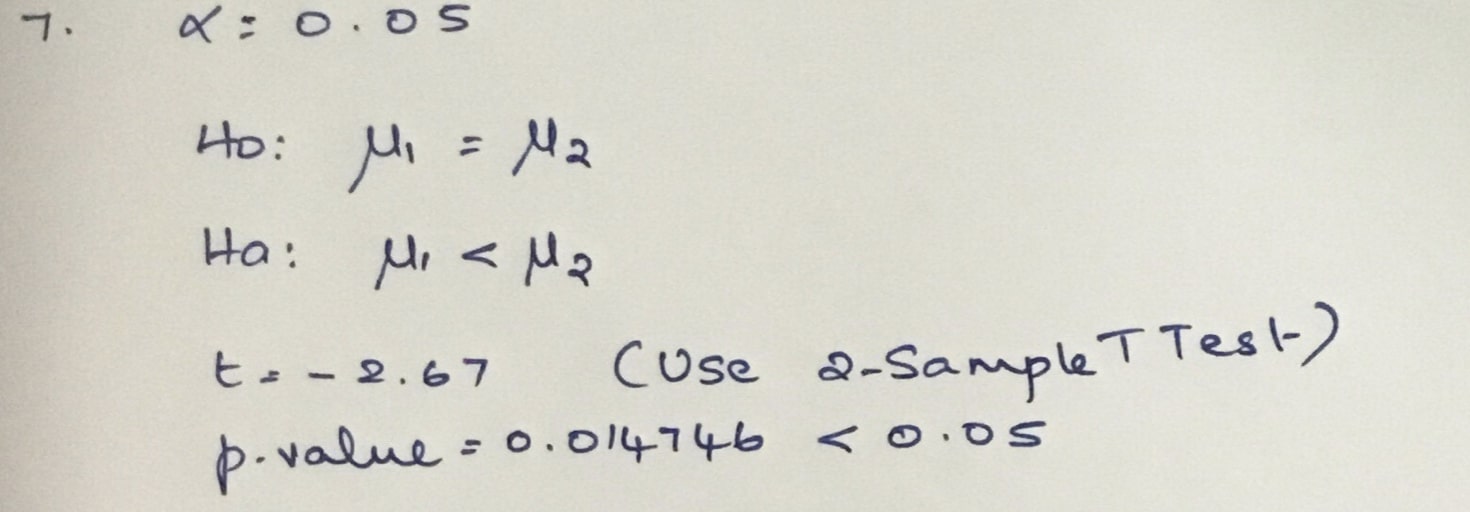 7. α = 0.05
Ho: μ1 = μ2
Ha: μ1 < μ2
t = - 2.67 (Use 2-Sample T Test)
p-value = 0.014746 < 0.05